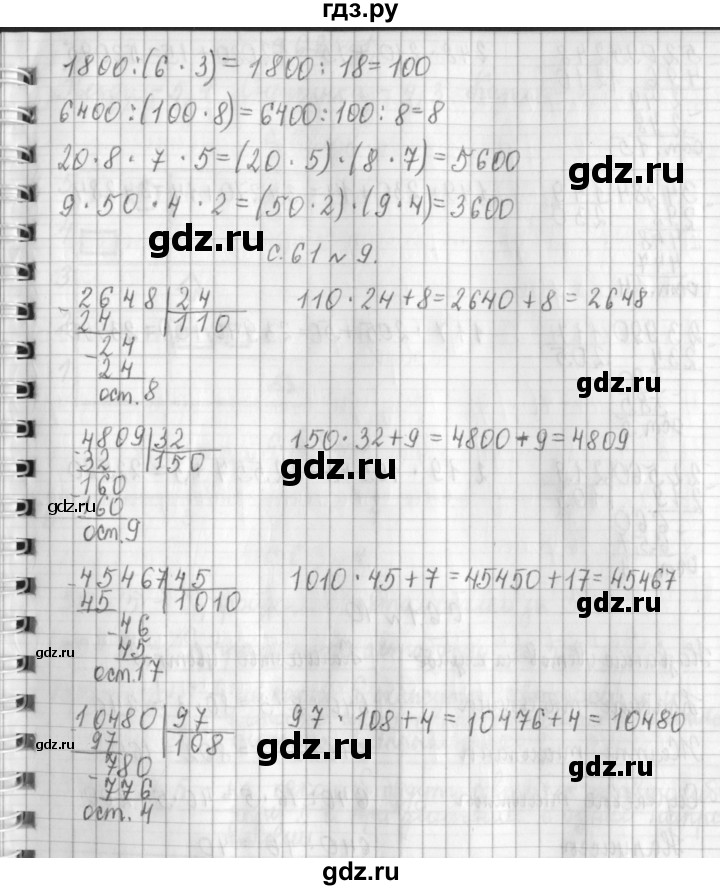 гдз.ру
1800:(6·3)=1800:18=100
6400:(100·8)=6400:100:8=8
20·8·7·5=(20·5)·(8·7)=5600
gdz.ru
9·50·4·2=(50·2)·(9·4)=3600
gdz.ru
с.61 № 9.
2648|24 110·24+8=2640+8=2648
24 110
-24
24
gdz.ru
ост.8
4809|32 150·32+9=4800+9=4809
-32 150
gdz.ru
-160
160
gdz.ru
ост.9
-45467|45 1010·45+7=45450+17=45467
45 1010
gdz.ru
-46
45
gdz.ru
ост.17
-10480|97 97·108+4=10476+4=10480
97 108
gdz.ru
gdz.ru
-780
776
gdz.ru
ост.4
gdz.ru